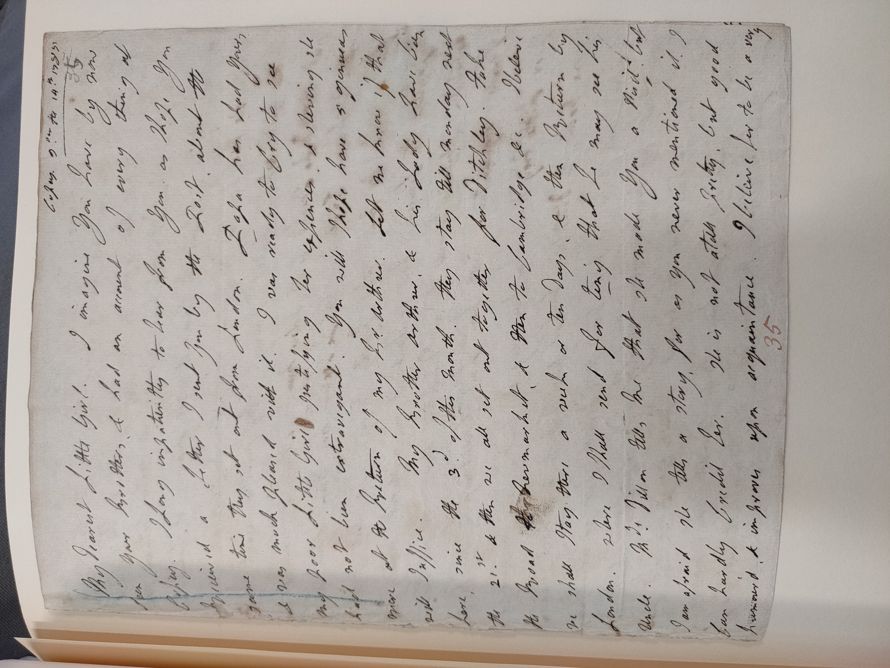 9th to 14th
35
My Dearest Little Girl. I imagine You have by now
seen your Brother, & had an account of every thing at
I long impatiently to hear from You. as I hope You
received a Letter I sent You by the Post, about the
same time they set out from London. Papa has had Yours,
& was much pleased with it. I was ready to Cry to see
my poor Little Girl justifying her expences, & shewing she
had not been extravagant. You will I hope have 5 guineas
more at the Return of my Brother. Let me know if that
will suffice. My Brother Arthur & his Lady have been
here since the 3d of this month. they stay till monday next
the 21st & then we all set out together for Ditchley. take
the Road Newmarket, & then to Cambridge &c I believe
we shall stay there a week or ten days, & then Return by
London. where I shall send for that he may see his
Uncle. Mrs tells me that she made You a Visit. but
I am afraid she tells a story, for as you never mentioned it I
can hardly Credit her. She is not attall Pretty, but good
humour'd, & improves upon acquaintance. I believe her to be a very
35